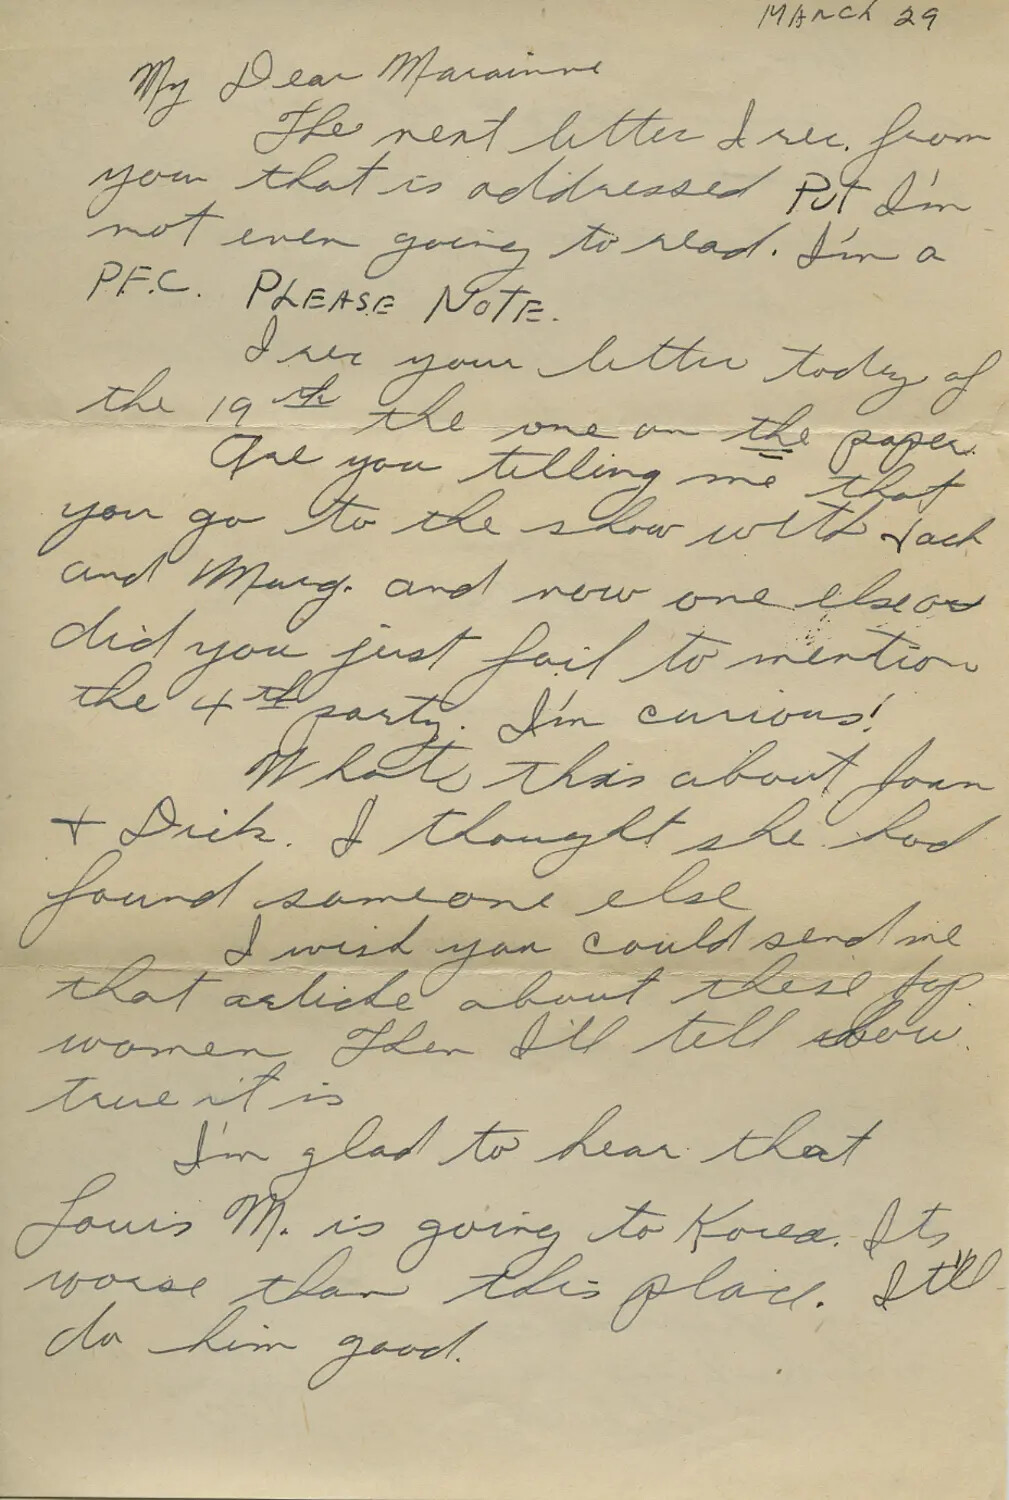 March 29
My Dear Marainne
The next letter I rec. from
you that is addressed Pvt I'm
not even going to read. I'm a
P.F.C. PLEASE NOTE.
I rec your letter today of
the 19th the one on the paper.
Are you telling me that
you go to the show with Jack
and Marg. and now one else or
did you just fail to mention
the 4th party. I'm curious!
Whats this about Joan
+ Dick. I thought she had
found someone else
I wish you could send me
that article about these Jap
women Then I'll tell how
true it is
I'm glad to hear that
Louis M. is going to Korea. Its
worse than this place. It'll
do him good.